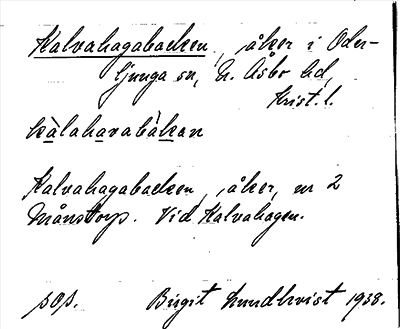 Kalvahagabacken, åker i Oder-
ljunga sn, N. Åsbo hd,
Krist. l.
kàlaharabàkan
Kalvahagabacken, åker, nr 2
Månstorp. Vid Kalvahagen.
pop. Birgit Lundkvist 1938.